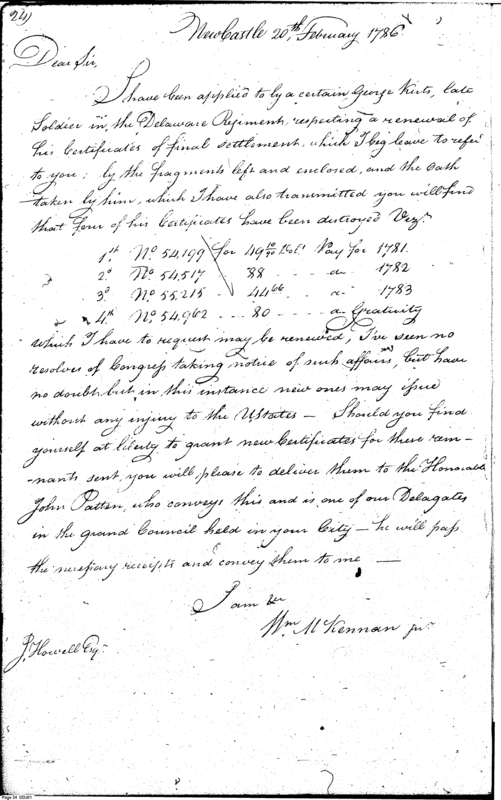 24)
NewCastle 20th, February 1786
Dear Sir,
I have been applied to by a certain George Kerts, late
Soldier in, the Delaware Regiment, respecting a renewal of
his Certificates of final settlement, which I beg leave to refer
to you: by the fragments left and enclosed, and the Cash
taken by him, which I have also transmitted you will find
that four of his Certificates have been destroyed Vizt.
1.st No. 54,199 for 49 Dol.s Pay for 1781.
2d No. 54,517 88 --- do 1782
3d No 55,215 44 66 do 1783
4th No. 54,962 --- 80 --- do Gratuity
which I have to request may be renewed, I've seen no
resolves of Congress taking notice of such affairs, but have
no doubt but in this instance new ones may issue
without any injury to the UStates — Should you find
yourself at liberty to grant new Certificates for these rem-
-nants sent, you will please to deliver them to the Honorable
John Patten, who conveys this and is one of our Delagates
in the grand Council held in your City — he will pass
the necessary receipts and convey them to me —
I am &c
Wm McKennan junr
J. Howell Esqr
Page 24 DDJ01